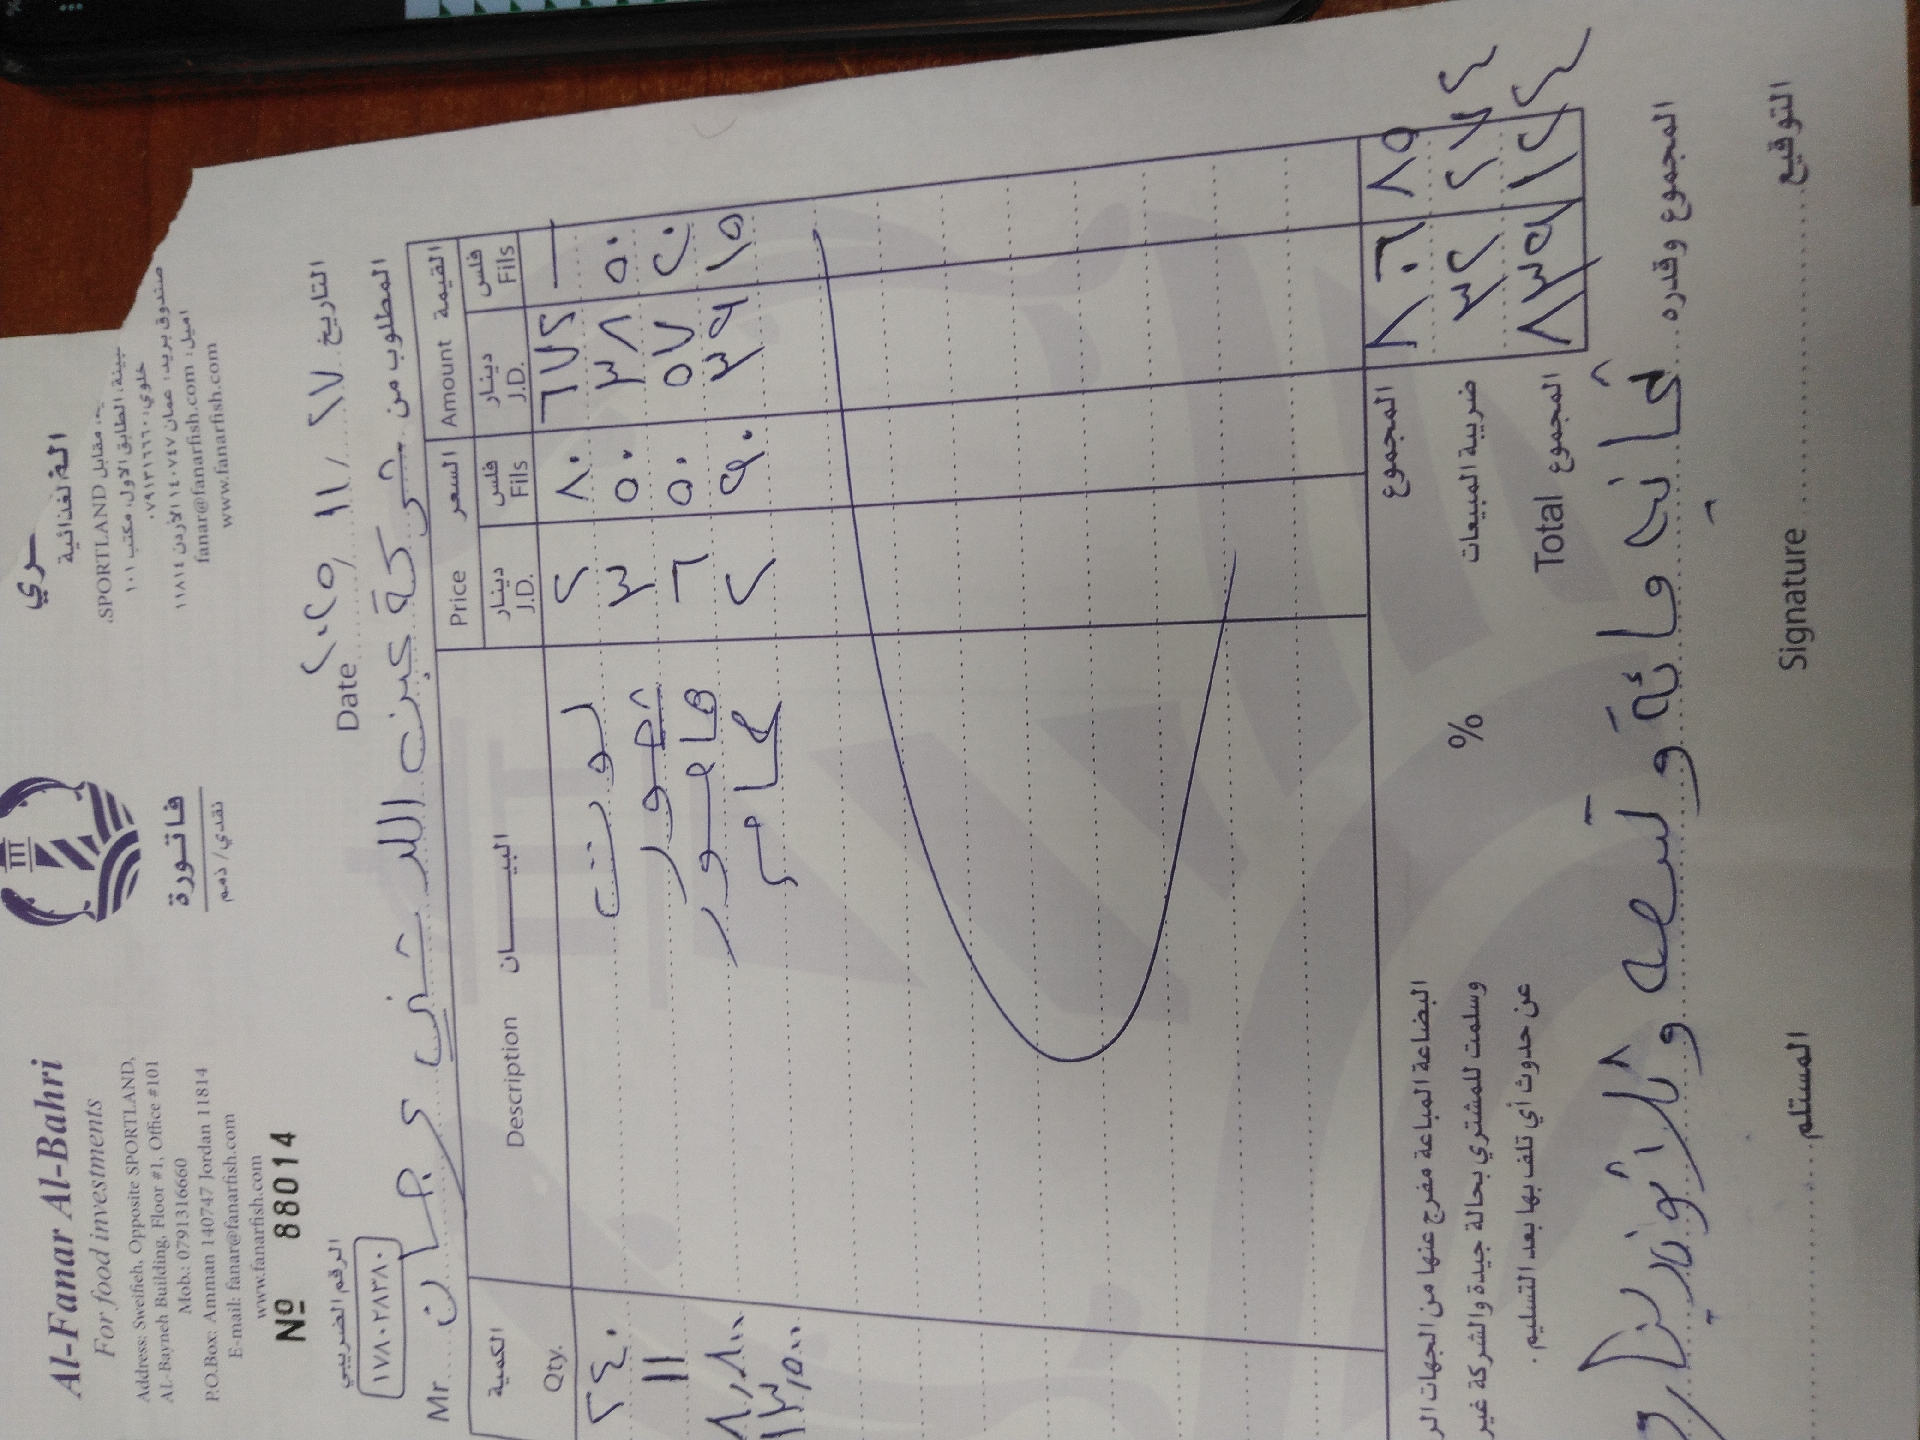 Al-Fanar Al-Bahri
For food investments
Address: Sweifieh, Opposite SPORTLAND,
AL-Bayneh Building, Floor #1, Office #101
Mob.: 0791316660
P.O.Box: Amman 140747 Jordan 11814
E-mail: fanar@fanarfish.com
www.fanarfish.com
فاتورة
نقدي / ذمم
ـري
الغذائية
مقابل SPORTLAND
الطابق الأول، مكتب ١٠١
خلوي: ٠٧٩١٣١٦٦٦٠
صندوق بريد: عمان ١٤٠٧٤٧ الأردن ١١٨١٤
اميل: fanar@fanarfish.com
www.fanarfish.com
Nº 88014
الرقم الضريبي
١٧٨٠٢٨٣٨٠
Date ٢٠٢٥/ ١١/ ٢٧ التاريخ
Mr. المطلوب من شركة
الكمية Qty. Description البيـــــان Price السعر Amount القيمة
دينار J.D. فلس Fils دينار J.D. فلس Fils
٢٤٠ ٢ ٨٠ ٦٧٢ —
١١ ٣ ٥٠ ٣٨ ٥٠
٨,٨٠٠ هامور ٦ ٥٠ ٥٧ ٢٠
١٣,٥٠٠ ٢ ٩٠ ٣٩ ١٥
المجموع ٨٠٦ ٨٥
% ضريبة المبيعات ٣٢ ٢٧٤
Total المجموع ٨٣٩ ١٢٤
البضاعة المباعة مفرج عنها من الجهات الر
وسلمت للمشتري بحالة جيدة والشركة غير
عن حدوث أي تلف بها بعد التسليم .
المجموع وقدره ثمانية مائة وتسعة وثلاثون دينار و
المستلم Signature التوقيع